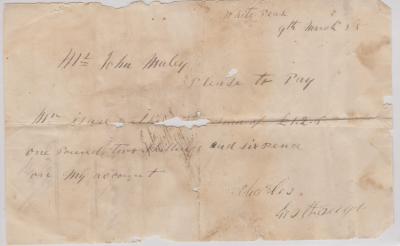 White Peak
9th March
Mr John Maley
Please to Pay
Mr Isaac sum of £1.2.6
one pound two shillings and sixpence
on My account
Charles